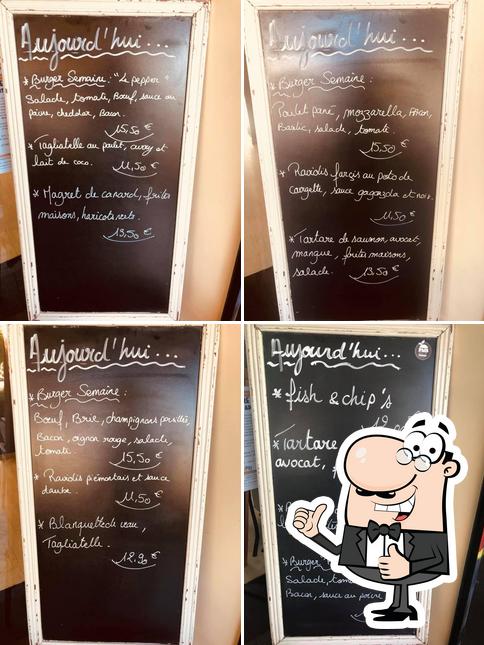 Aujourd'hui...
* Burger Semaine: "Le pepper"
Salade, tomate, Bœuf, sauce au
poivre, cheddar, Bacon.
15,50 €
* Tagliatelle au poulet, curry et
lait de coco.
11,50 €
* Magret de canard, frites
maisons, haricots verts.
13,50 €
Aujourd'hui...
* Burger Semaine:
Poulet pané, mozzarella, Bacon,
Basilic, salade, tomate.
15,50 €
* Raviolis farçis au pesto de
courgette, sauce gorgonzola et noix.
11,50 €
* Tartare de saumon, avocat,
mangue, frites maisons,
salade.
13,50 €
Aujourd'hui...
* Burger Semaine:
Bœuf, Brie, champignons persillés,
Bacon, oignon rouge, salade,
tomate.
15,50 €
* Raviolis piémontais et sauce
daube.
11,50 €
* Blanquette de veau,
Tagliatelle.
12,90 €
Aujourd'hui...
* fish & chip's
* Tartare
avocat,
* Burger
Salade,
Bacon, sauce au poivre